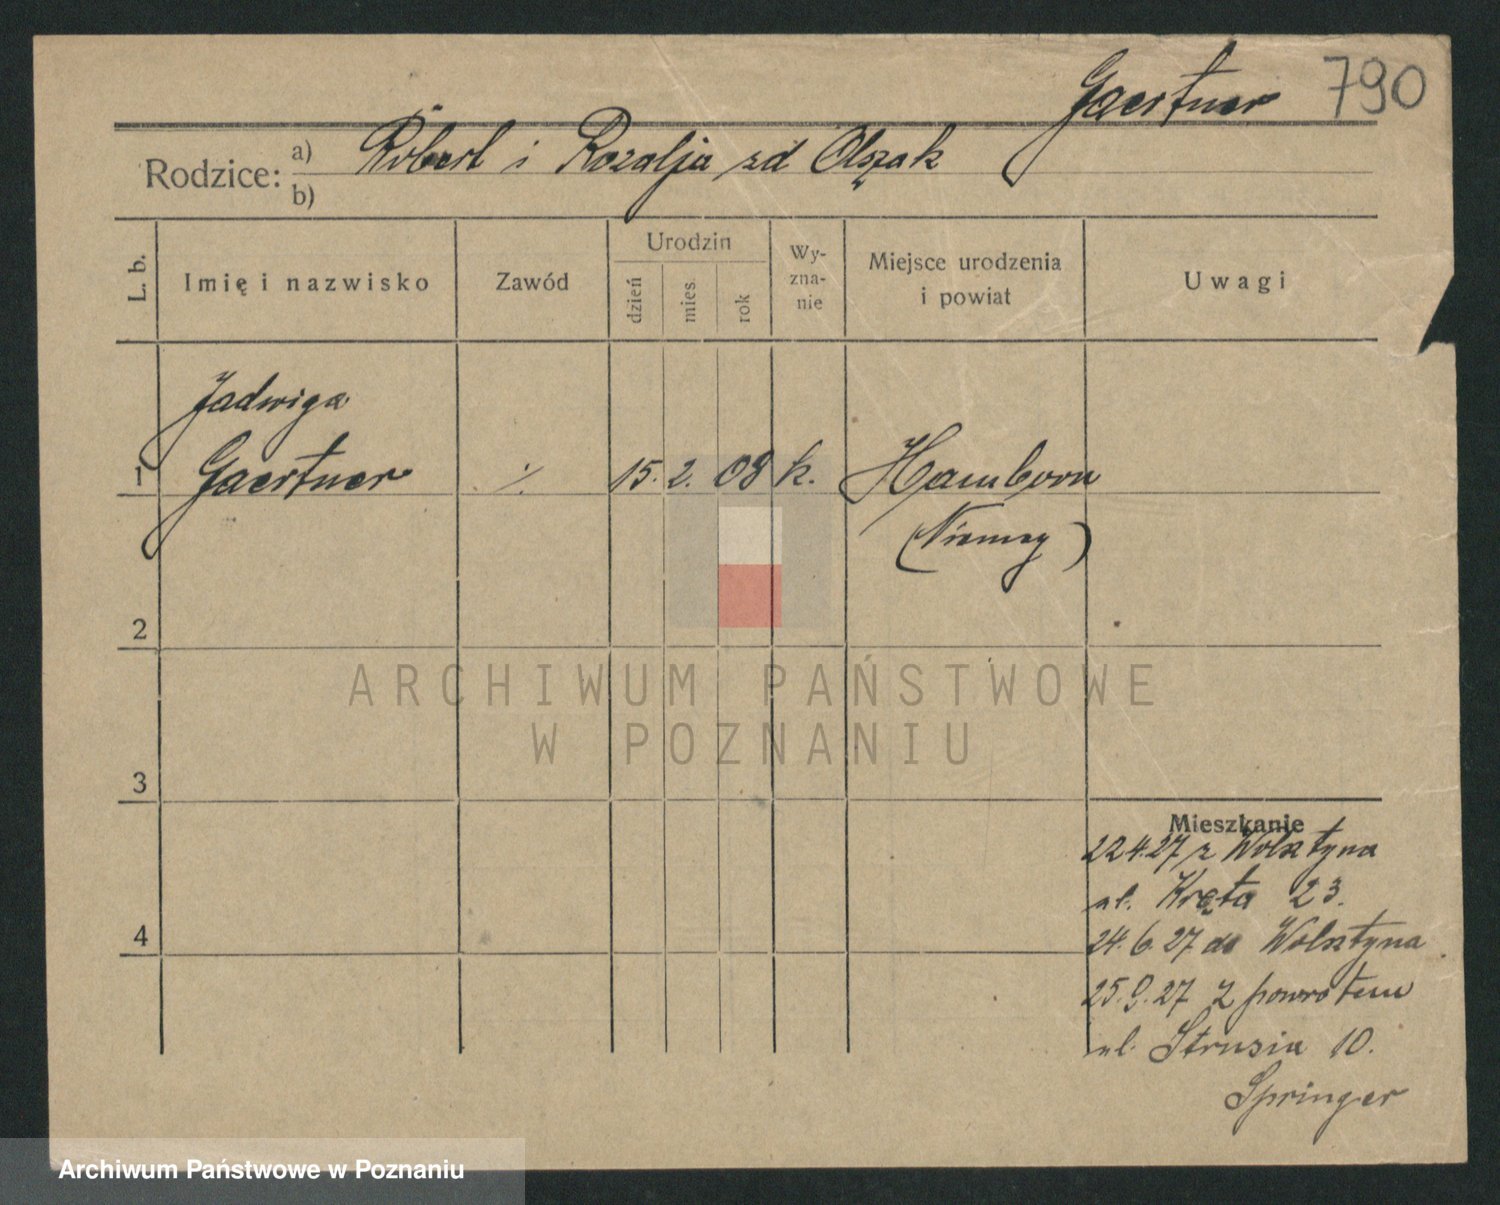 Gaertner 790
Rodzice: a) Robert i Rozalja zd Olszak
b)
L. b.
Imię i nazwisko
Zawód
Urodzin
dzień
mies.
rok
Wy-
zna-
nie
Miejsce urodzenia
i powiat
Uwagi
Jadwiga
1 Gaertner ·/. 15. 2. 08 k. Hamborn
(Niemcy)
2
ARCHIWUM PAŃSTWOWE
W POZNANIU
3
Mieszkanie
22.4.27 z Wolsztyna
ul. Kręta 23.
4
24.6.27 do Wolsztyna
25.9.27 z powrotem
ul. Strusia 10.
Springer
Archiwum Państwowe w Poznaniu